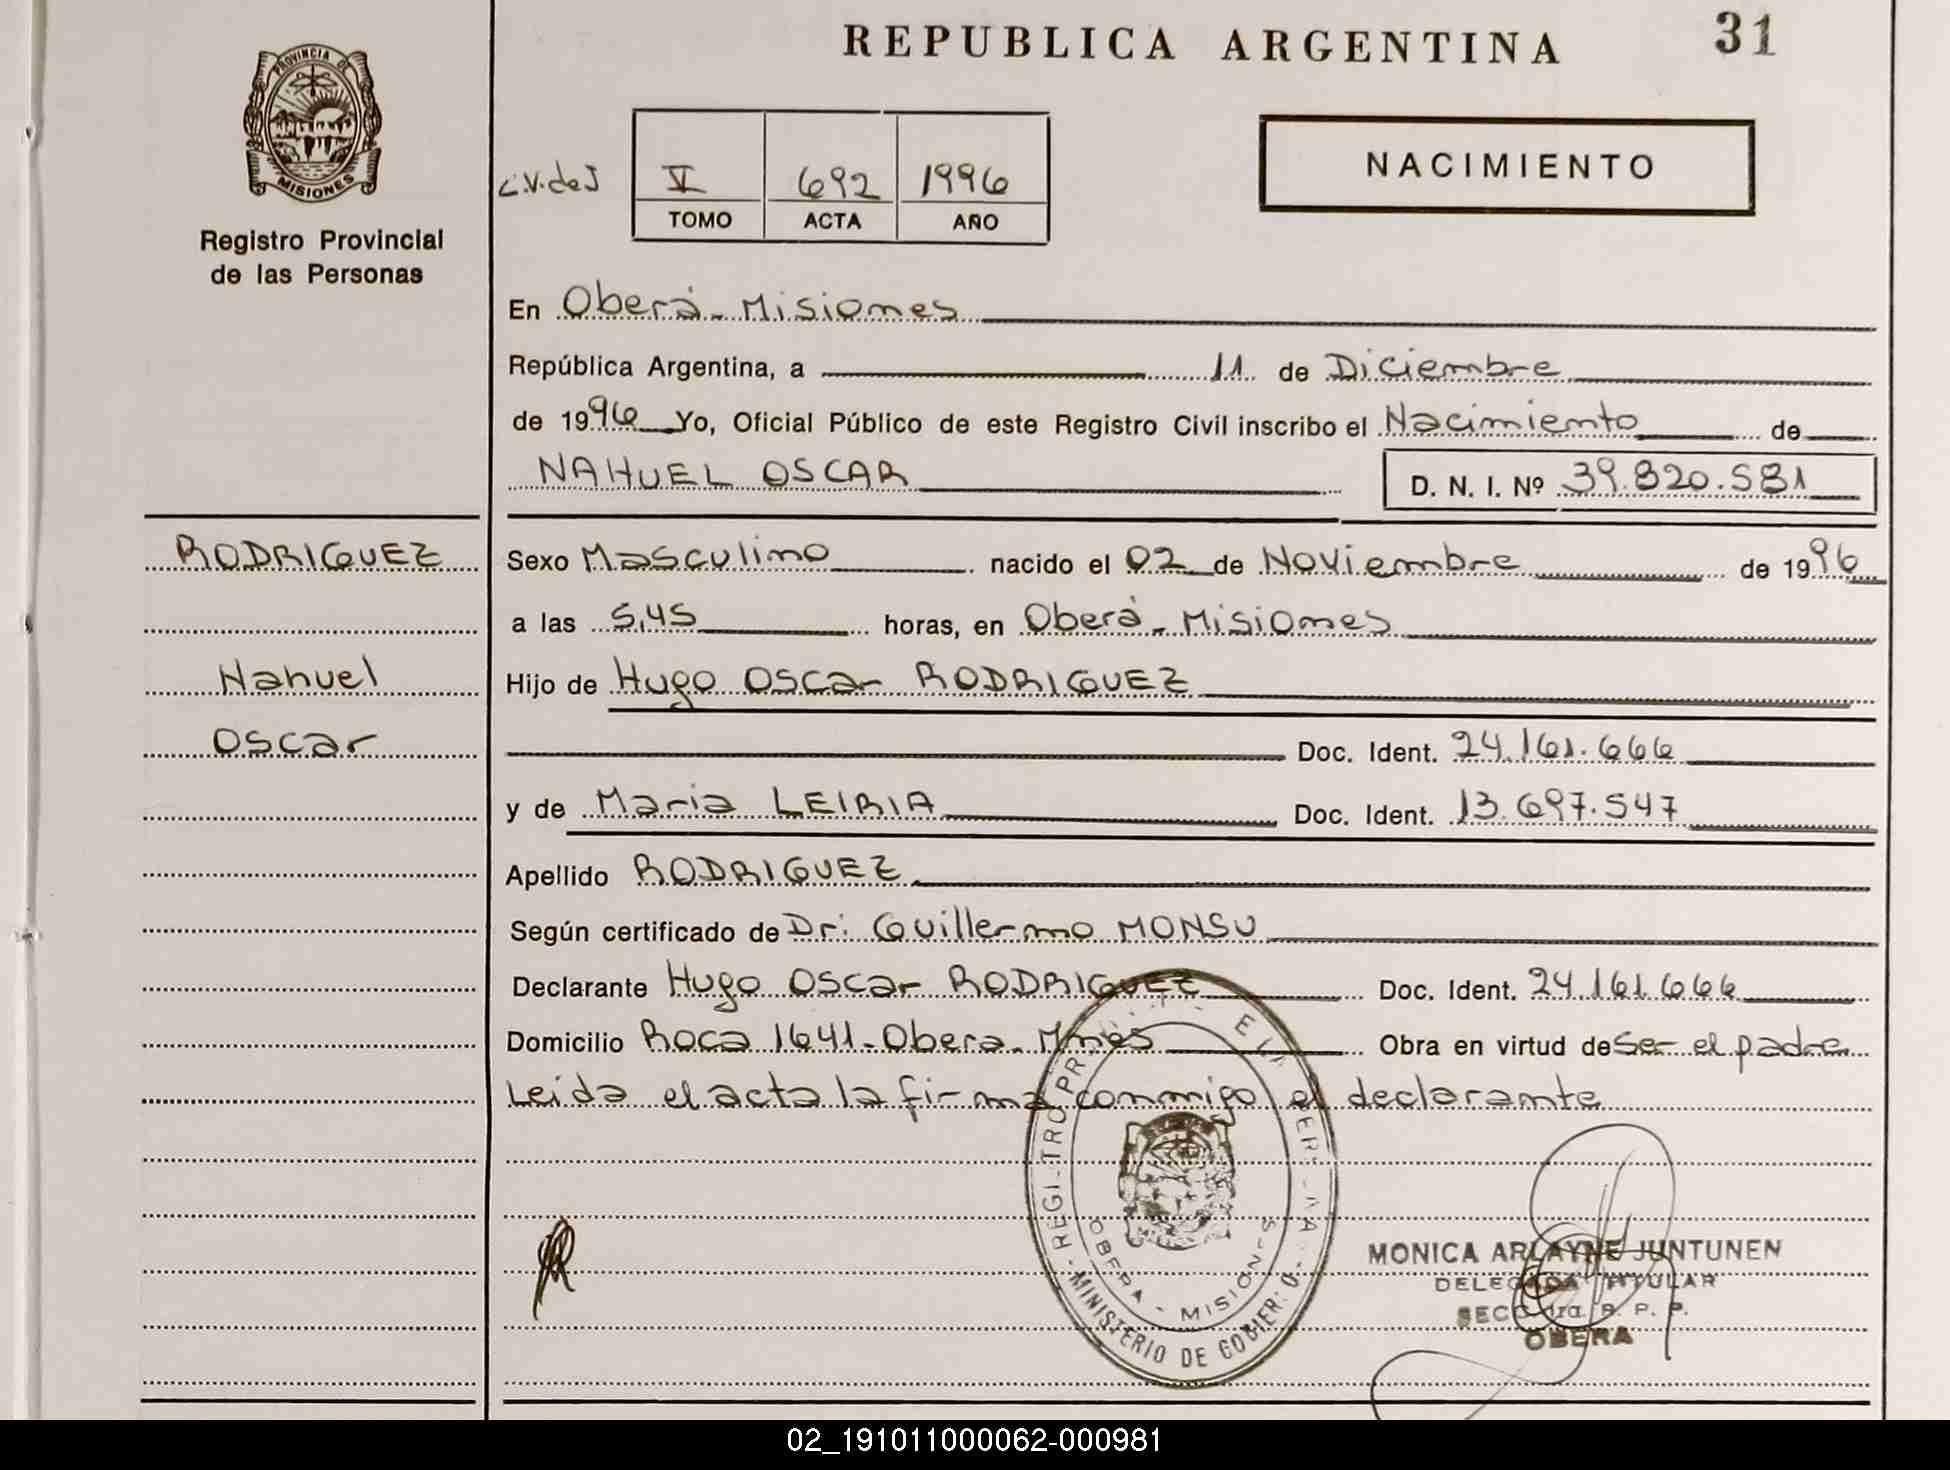 REPUBLICA ARGENTINA
31
PROVINCIA DE
MISIONES
Registro Provincial
de las Personas
V 692 1996
TOMO ACTA AÑO
NACIMIENTO
En Oberá - Misiones
República Argentina, a 11 de Diciembre
de 1996 Yo, Oficial Público de este Registro Civil inscribo el Nacimiento de
NAHUEL OSCAR D. N. I. Nº 39.820.581
RODRIGUEZ
Nahuel
Oscar
Sexo Masculino nacido el 02 de Noviembre de 1996
a las 5,45 horas, en Oberá - Misiones
Hijo de Hugo Oscar RODRIGUEZ
Doc. Ident. 24.161.666
y de Maria LEIRIA Doc. Ident. 13.697.547
Apellido RODRIGUEZ
Según certificado de Dr: Guillermo MONSU
Declarante Hugo Oscar RODRIGUEZ Doc. Ident. 24.161.666
Domicilio Roca 1641 - Obera - Mnes Obra en virtud de Ser el padre
Leida el acta la firma conmigo el declarante
MINISTERIO DE
OBERA - MISIONES
MONICA ARLAYNE JUNTUNEN
DELEGADA TITULAR
SECC 1ra. R. P. P.
OBERA
02_191011000062-000981